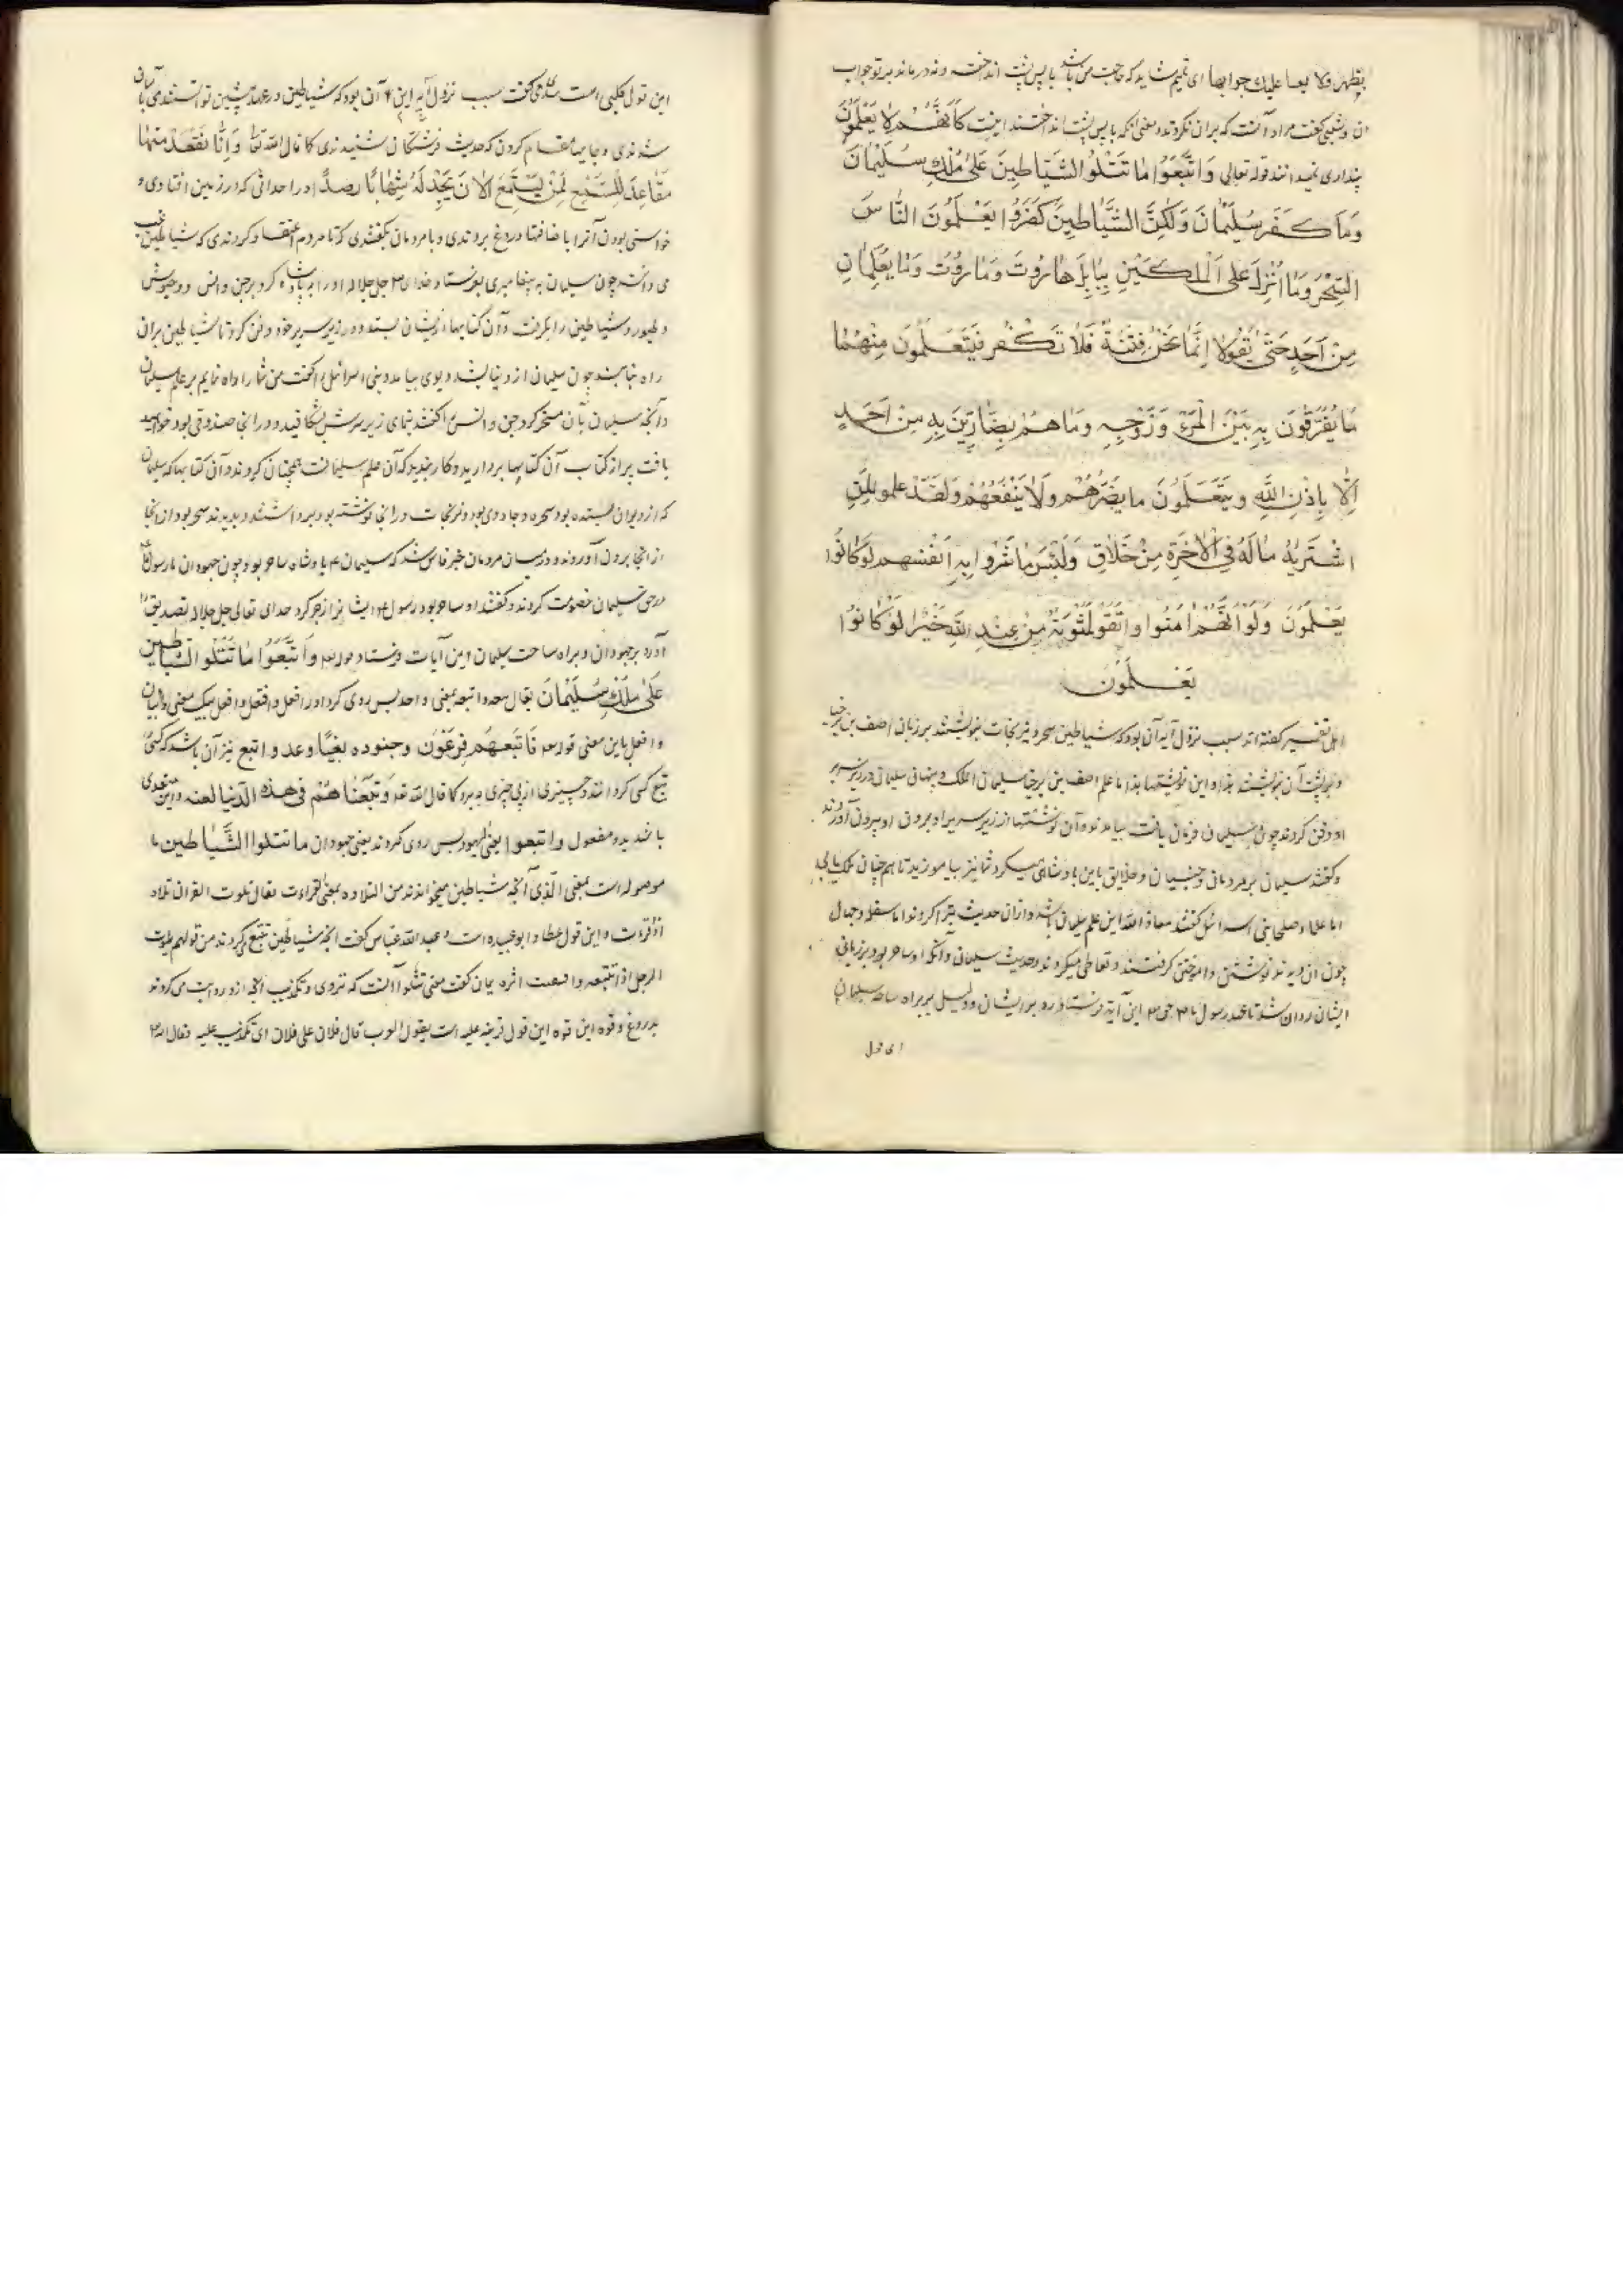 بظهر ولا یعبا علیك جوابها ای تمیم شاید که حاجت من باشد با پس پشت انداخته ونه درماند بر تو جواب
آن وشعبی گفت مراد آنست که بران نکردند و معنی آنکه با پس پشت انداختند اینست كَاَنَّهُمْ لا یَعْلَمُونَ
پنداری نمیدانند قوله تعالی وَاتَّبَعُوا مٰا تَتْلُوا الشَّیٰاطِینَ عَلیٰ مُلْكِ سُلَیْمٰانَ
وَمٰا كَفَرَ سُلَیْمٰانَ وَلٰكِنَّ الشَّیٰاطِینَ كَفَرُوا یَعْلَمُونَ النّٰاسَ
السِّحْرَ وَمٰا اُنْزِلَ عَلَی الْمَلَكَیْنِ بِبٰابِلَ هٰارُوتَ وَمٰارُوتَ وَمٰا یُعَلِّمٰانِ
مِنْ اَحَدٍ حَتّیٰ یَقُولا اِنَّمٰا نَحْنُ فِتْنَةٌ فَلٰا تَكْفُر فَیَتَعَلَّمُونَ مِنْهُمٰا
مٰا یُفَرِّقُونَ بِهِ بَیْنَ الْمَرْءِ وَزَوْجِهِ وَمٰا هُمْ بِضٰارِّینَ بِهِ مِنْ اَحَدٍ
اِلّٰا بِاِذْنِ اللّٰهِ وَیَتَعَلَّمُونَ ما یَضُرُّهُمْ وَلٰا یَنْفَعُهُمْ وَلَقَدْ علموا لَمَنِ
اشْتَرٰیهُ مٰا لَهُ فِی الْاٰخِرَةِ مِنْ خَلٰاقٍ وَلَبِئْسَ مٰا شَرَوْا بِهِ اَنْفُسَهُمْ لَوْ كٰانُوا
یَعْلَمُونَ وَلَوْ اَنَّهُمْ اٰمَنُوا وَاتَّقَوْا لَمَثُوبَةٌ مِنْ عِنْدِ اللّٰهِ خَیْرٌ لَوْ كٰانُوا
یَعْلَمُونَ
اهل تفسیر گفته اند سبب نزول آیه آن بود که شیاطین سحر و نیرنجات بنوشتند بر زبان اصف بن برخیا
و بر پشت آن بنوشتند هذا ما علم اصف بن برخیا سلیمان الملک و پنهان سلیمان در زیر سریر
او دفن کردند چون سلیمان فرمان یافت بیامدند و آن نوشتها از زیر سریر او بیرون آوردند
و گفتند سلیمان بر مردمان و جنیان و خلایق باین پادشاهی میکرد شما نیز بیاموزید تا همچنان ملک یابید
اما علما و صلحا بنی اسرائیل گفتند معاذ الله این علم سلیمان باشد و ازان حدیث تبرا کردند اما سفله و جهال
چون آن دیدند نوشتن و آموختن گرفتند و تعاطی میکردند و حدیث سلیمان و آنکه او ساحر بود بر زبان
ایشان روان شد تا بعهد رسول ما حق تعالی این آیه فرستاد رد بر ایشان و دلیل بر براه ساحه سلیمان
این قول
این قول کلبی است سدی گفت سبب نزول این آیه آن بود که شیاطین در عهد پیشین توانستندی با آسمان
شدندی و جایها مقام کردن که حدیث فرشتگان شنیدندی کما قال الله تعا وَاَنّٰا نَقْعُدُ مِنْهٰا
مَقٰاعِدَ لِلسَّمْعِ لَمَنْ یَسْتَمِعُ الاٰنَ یَجِدْ لَهُ شِهٰابًا رَصَدًا و در احداثی که در زمین افتادی و
خواستی بودن آنرا با ضافتها دروغ بردندی و با مردمان بگفتندی که تا مردم اعتقاد کردندی که شیاطین غیب
می دانند چون سلیمان به پیغامبری بفرستاد خدای جل جلاله او را پادشاه کرد بر جن و انس و وحوش
و طیور و شیاطین را بگرفت و آن کتابها از ایشان بستد و در زیر سریر خود دفن کرد تا شیاطین بران
راه نیابند چون سلیمان از دنیا بشد دیوی بیامد و بنی اسرائیل را گفت من شما را راه نمایم بر علم سلیمان
و آنچه سلیمان بآن مسخر کرد جن و انس را گفتند بنمای زیر سریرش بشکافید و در آنجا صندوقی بود خواهید
یافت پر از کتاب آن کتابها بردارید و کار بندید که آن علم سلیمانست همچنان کردند و آن کتابها که سلیمان
که از دیوان بستده بود سحره و جادوی بود و نیرنجات در آنجا نوشته بود برداشتند و بدیدند سحر بود از آنجا
از آنجا برون آوردند و در میان مردمان خبر فاش شد که سلیمان پادشاه ساحر بود چون جهودان با رسول
در حق سلیمان خصومت کردند و گفتند او ساحر بود رسول ایشانرا زجر کرد خدای تعالی جل جلاله تصدیق
آورد بر جهودان و براه ساحت سلیمان این آیات فرستاد قوله وَاتَّبَعُوا مٰا تَتْلُوا الشَّیٰاطین
عَلیٰ مُلْكِ سُلَیْمٰانَ یقال تبعه واتبعه بمعنی واحد پس روی کرد او را فعل وافتعل وافعل بیک معنی والبیان
وافعل باین معنی قوله فَاَتْبَعَهُمْ فِرْعَوْنَ وجنوده بَغْیًا وعدوا واتبع نیز آن باشد که کسی
تبع کسی کرد انند و چیزی از پی چیزی ببرد کما قال الله تعا وَاَتْبَعْنٰاهُمْ فی هذه الدّنیا لعنه واین متعدی
باشد بدو مفعول واتبعوا یعنی الیهود پس روی کردند یعنی جهودان ما تتلوا الشَّیٰاطین ما
موصوله است بمعنی الّذی آنچه شیاطین میخواندند من التلاوه بمعنی القراءت یقال تلوت القران تلاوه
اذا قرات و این قول عطا و ابوعبیده است و عبد الله عباس گفت آنچه شیاطین تتبع میکردند من قولهم تلوت
الرجل اذا تتبعته واتبعت اثره یمان گفت معنی تتلوا آنست که تروی و تکذیب آنچه ازو روایت می کردند
بدروغ وقوه این قوه این قول قرینه علیه است یقول العرب قال فلان علی فلان ای تکذب علیه وقال الله